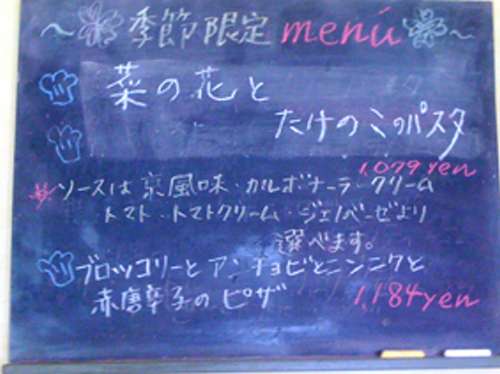 ～季節限定 menú～
菜の花と
たけのこのパスタ
1,079yen
ソースは京風味・カルボナーラ・クリーム
トマト・トマトクリーム・ジェノベーゼより
選べます。
ブロッコリーとアンチョビとニンニクと
赤唐辛子のピザ 1,184yen